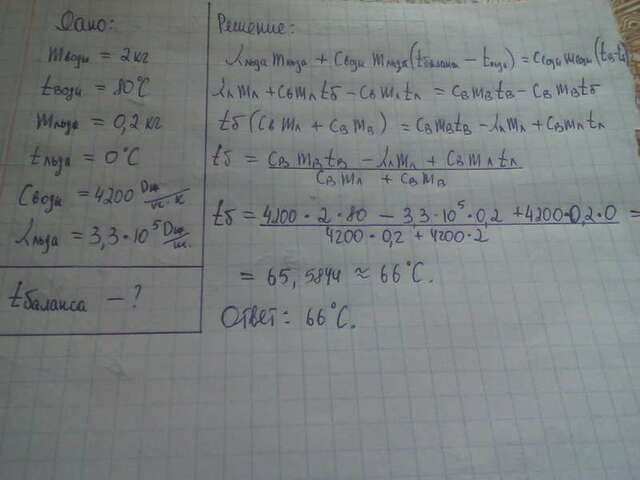 Дано:
mводы = 2 кг
tводы = 80°C
mльда = 0,2 кг
tльда = 0°C
Cводы = 4200 Дж/кг·К
λльда = 3,3·10⁵ Дж/кг.
tбаланса – ?
Решение:
λльда mльда + Cводы mльда (tбаланса – tльда) = Cводы mводы (tв-tб
λл mл + Cв mл tб – Cв mл tл = Cв mв tв – Cв mв tб
tб (Cв mл + Cв mв) = Cв mв tв – λл mл + Cв mл tл
tб = (Cв mв tв – λл mл + Cв mл tл) / (Cв mл + Cв mв)
tб = (4200 · 2 · 80 – 3,3·10⁵·0,2 + 4200·0,2·0) / (4200 · 0,2 + 4200·2) =
= 65,5844 ≈ 66°C.
Ответ: 66°C.